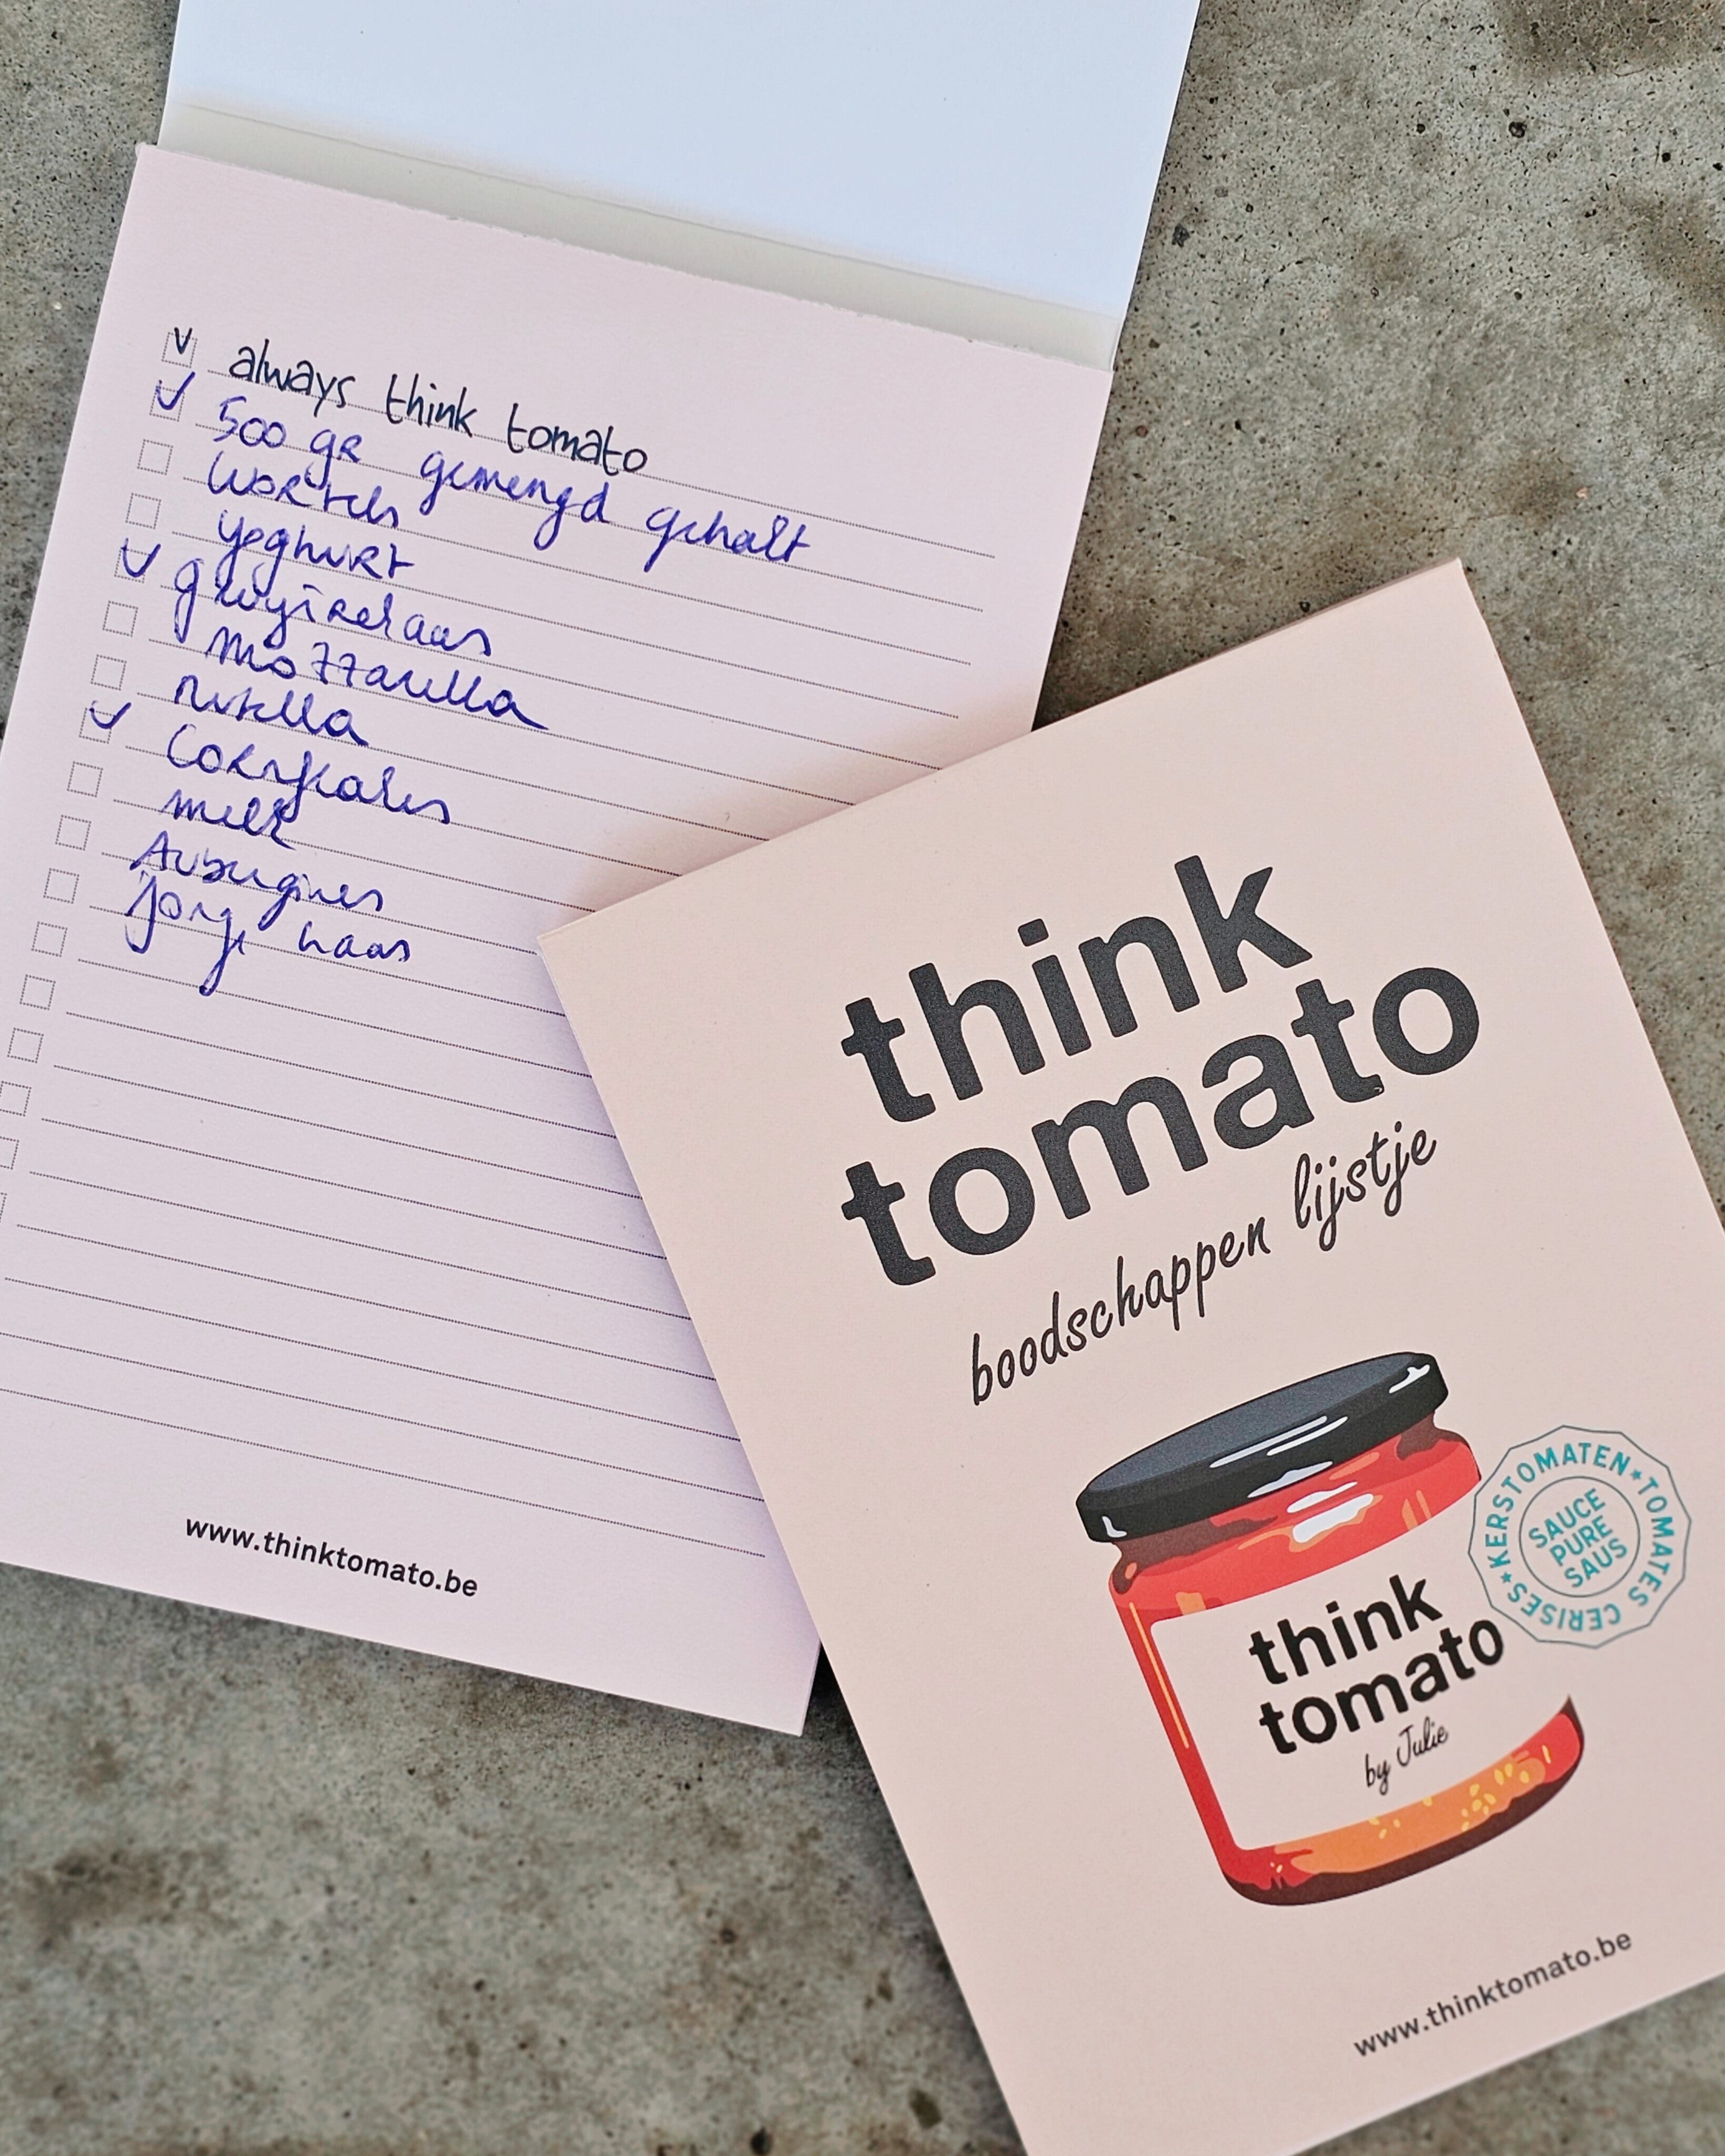 always think tomato
500 gr gemengd gehakt
wortels
yoghurt
gruyèrekaas
mozzarella
nutella
Cornflakes
melk
Aubergines
jonge kaas
www.thinktomato.be
think
tomato
boodschappen lijstje
KERSTOMATEN * TOMATES CERISES *
SAUCE
PURE
SAUS
think
tomato
by Julie
www.thinktomato.be